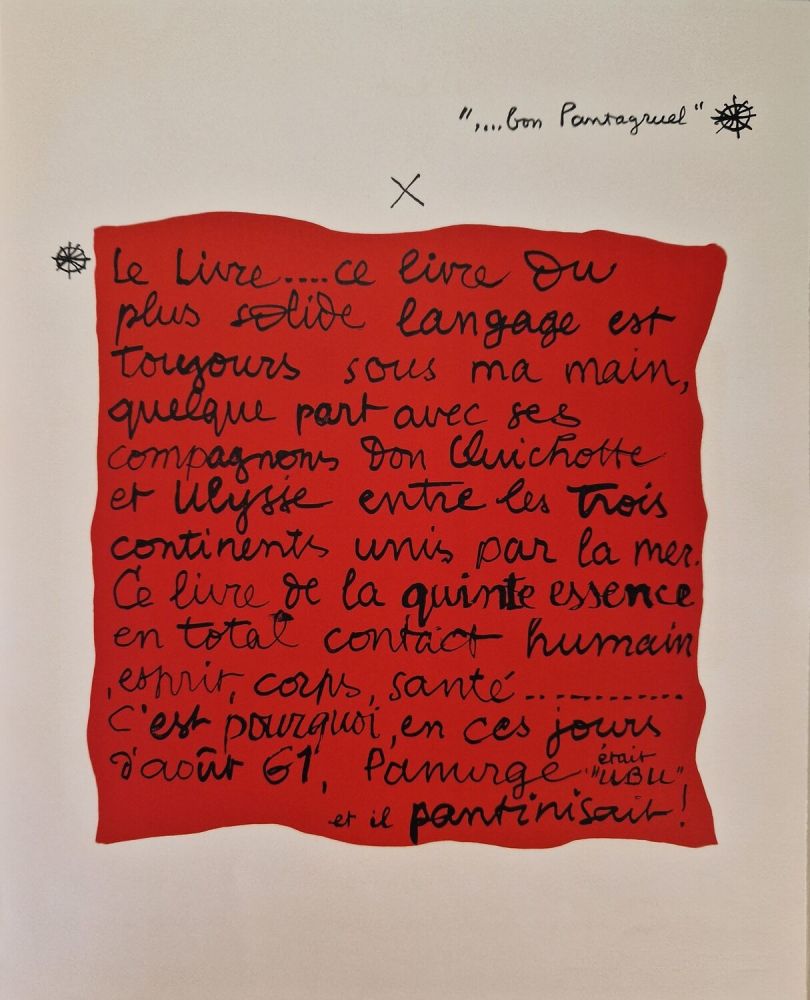 ",...bon Pantagruel"
X
Le Livre....ce livre du
plus solide langage est
toujours sous ma main,
quelque part avec ses
compagnons Don Quichotte
et Ulysse entre les trois
continents unis par la mer.
Ce livre de la quinte essence
en total contact humain
,esprit, corps, santé..............
C'est pourquoi, en ces jours
d'août 61, Panurge était "UBU"
et il pantinisait!